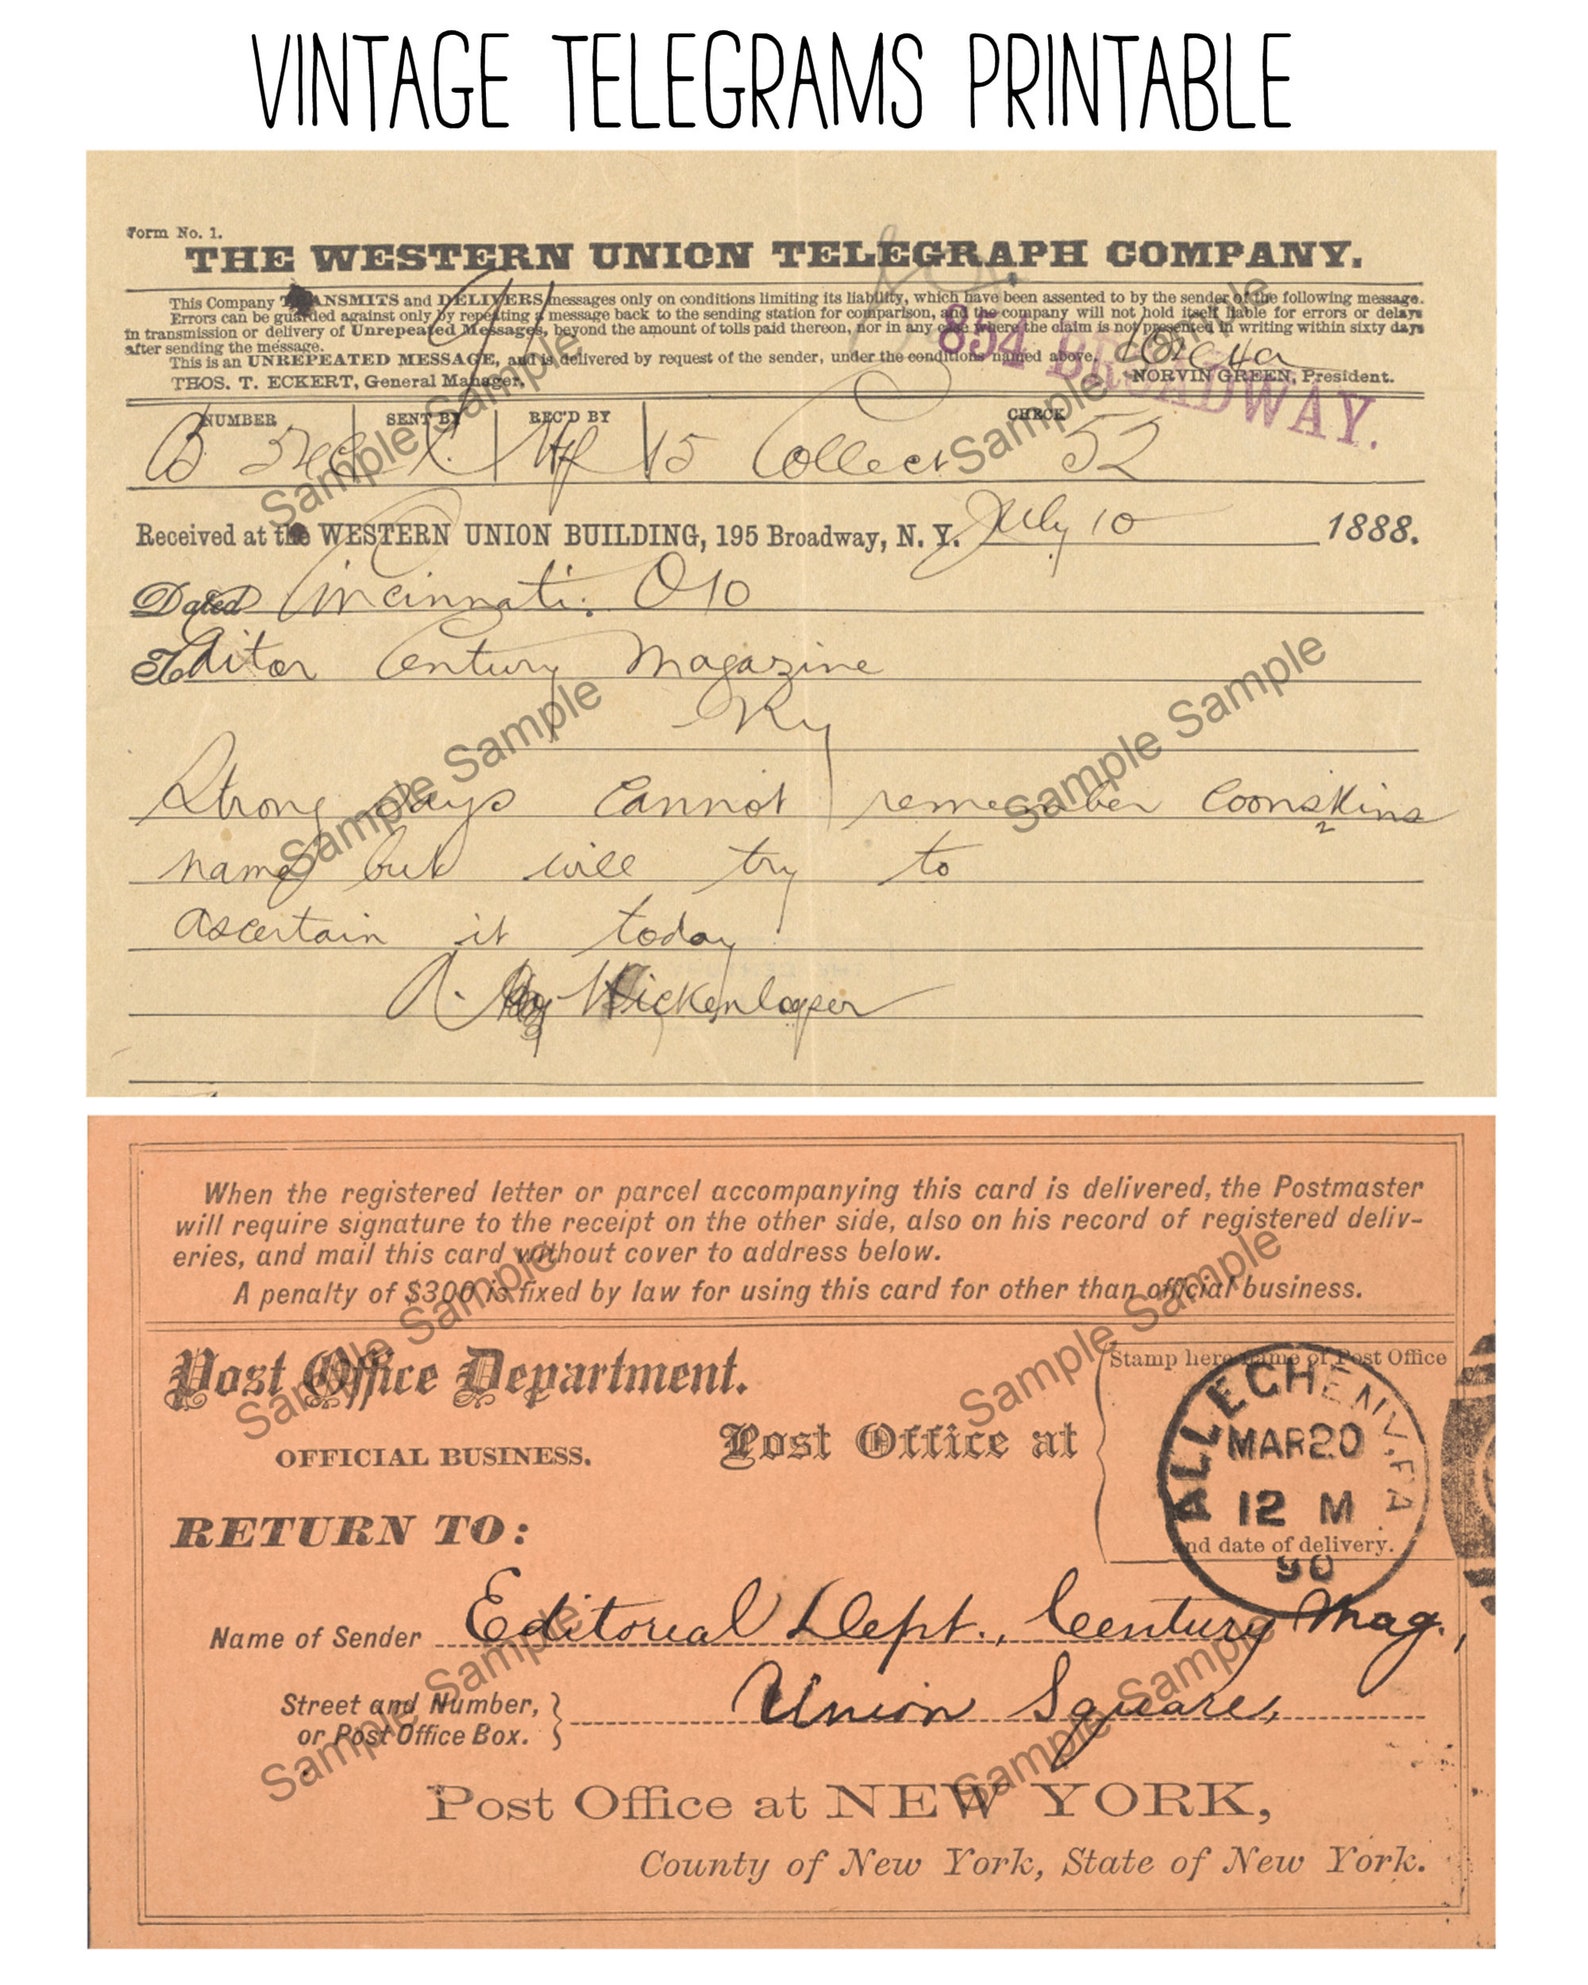 VINTAGE TELEGRAMS PRINTABLE
Form No. 1.
THE WESTERN UNION TELEGRAPH COMPANY.
This Company TRANSMITS and DELIVERS messages only on conditions limiting its liability, which have been assented to by the sender of the following message.
Errors can be guarded against only by repeating a message back to the sending station for comparison, and the company will not hold itself liable for errors or delays
in transmission or delivery of Unrepeated Messages, beyond the amount of tolls paid thereon, nor in any case where the claim is not presented in writing within sixty days
after sending the message.
This is an UNREPEATED MESSAGE, and is delivered by request of the sender, under the conditions named above.
THOS. T. ECKERT, General Manager. NORVIN GREEN, President.
854 BROADWAY.
NUMBER SENT BY REC'D BY CHECK
15 Collect 52
Received at the WESTERN UNION BUILDING, 195 Broadway, N. Y. July 10 1888.
Dated Cincinnati. O 10
To Editor Century Magazine
Ny
Strong says cannot remember Coonskins
name but will try to
ascertain it today
A. Hickenlooper
When the registered letter or parcel accompanying this card is delivered, the Postmaster
will require signature to the receipt on the other side, also on his record of registered deliv-
eries, and mail this card without cover to address below.
A penalty of $300 is fixed by law for using this card for other than official business.
Post Office Department.
OFFICIAL BUSINESS.
Post Office at
Stamp here name of Post Office
and date of delivery.
ALLEGHENY, PA
MAR 20
12 M
90
RETURN TO:
Name of Sender Editorial Dept., Century Mag.,
Street and Number,
or Post Office Box. } Union Square,
Post Office at NEW YORK,
County of New York, State of New York.
Sample Sample
Sample Sample
Sample Sample
Sample Sample
Sample Sample
Sample Sample
Sample Sample
Sample Sample